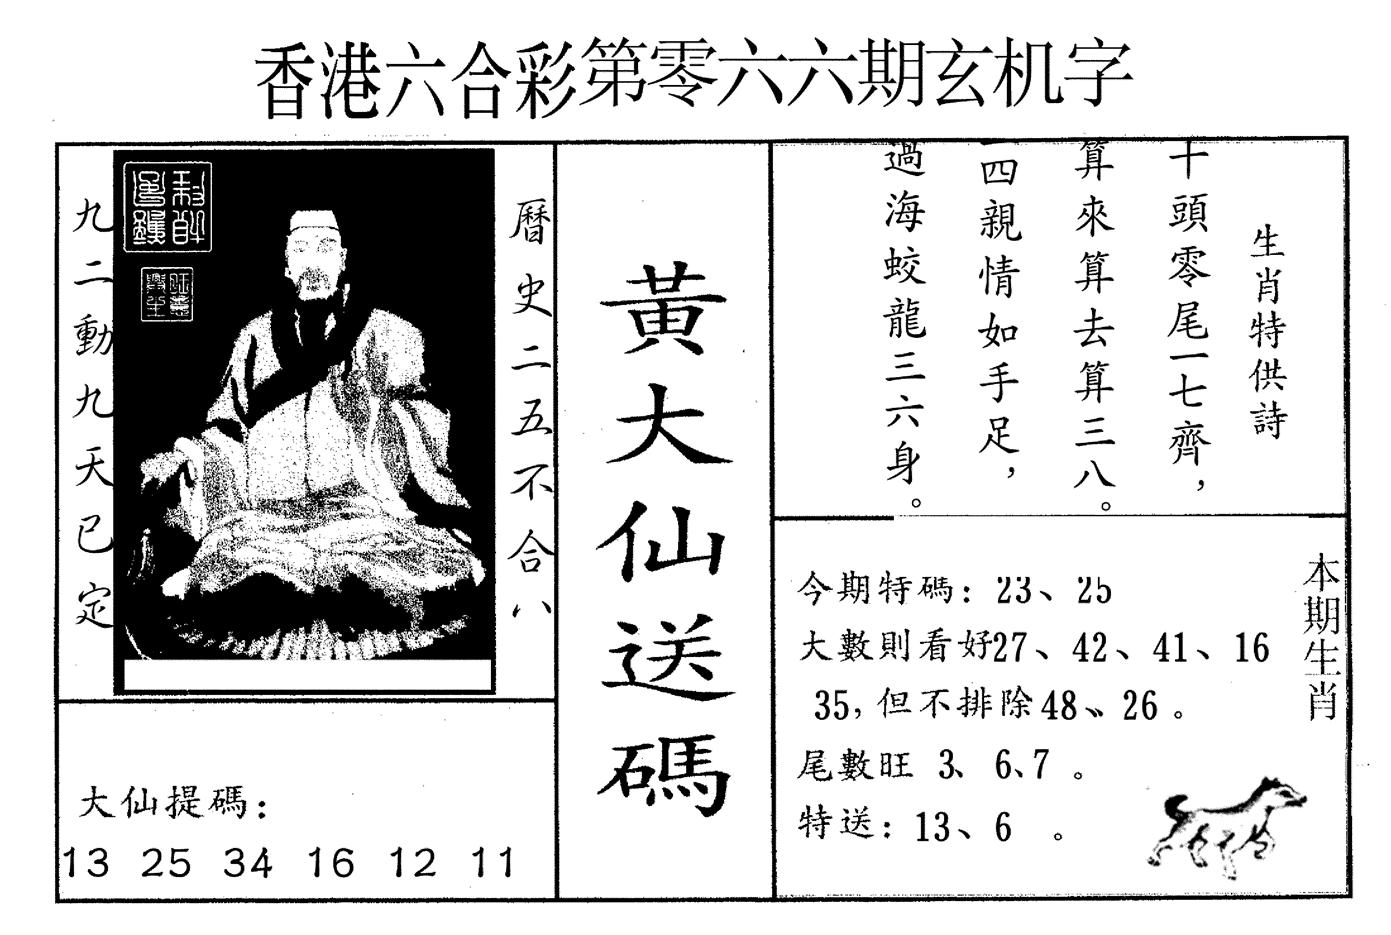 香港六合彩第零六六期玄机字
曆史二五不合八
九二動九天已定
黃大仙送碼
生肖特供詩
十頭零尾一七齊，
算來算去算三八。
四親情如手足，
過海蛟龍三六身。
今期特碼：23、25
大數則看好27、42、41、16
35，但不排除48、26。
尾數旺 3、6、7。
特送：13、6 。
本期生肖
大仙提碼：
13 25 34 16 12 11